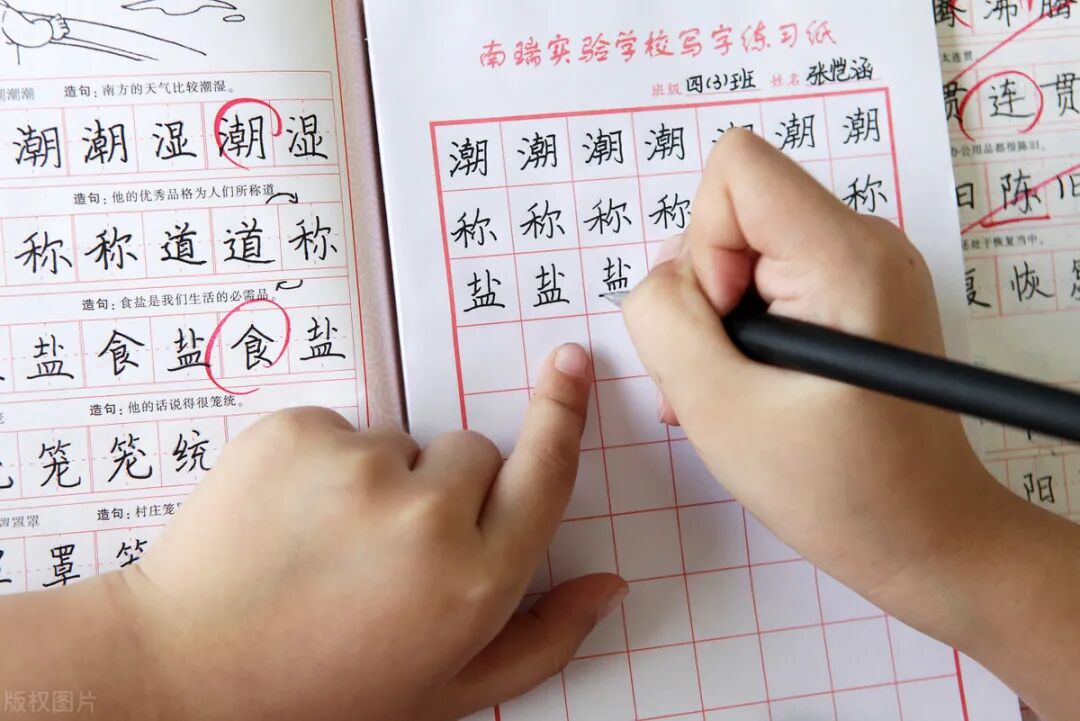 潮潮 造句：南方的天气比较潮湿。
潮 潮 湿 潮 湿
造句：他的优秀品格为人们所称道
称 称 道 道 称
造句：食盐是我们生活的必需品。
盐 食 盐 食 盐
造句：他的话说得很笼统。
笼 笼 统
罩罩罩 造句：村庄笼
罩
南瑞实验学校写字练习纸
班级 四(3)班 姓名 张恺涵
潮 潮 潮 潮 潮 潮 潮
称 称 称 称 称
盐 盐 盐
沸 腾
太连贯
贯 连 贯
办公用品都很陈旧。
旧 陈 旧
还处于恢复当中。
复 恢
阳
版权图片